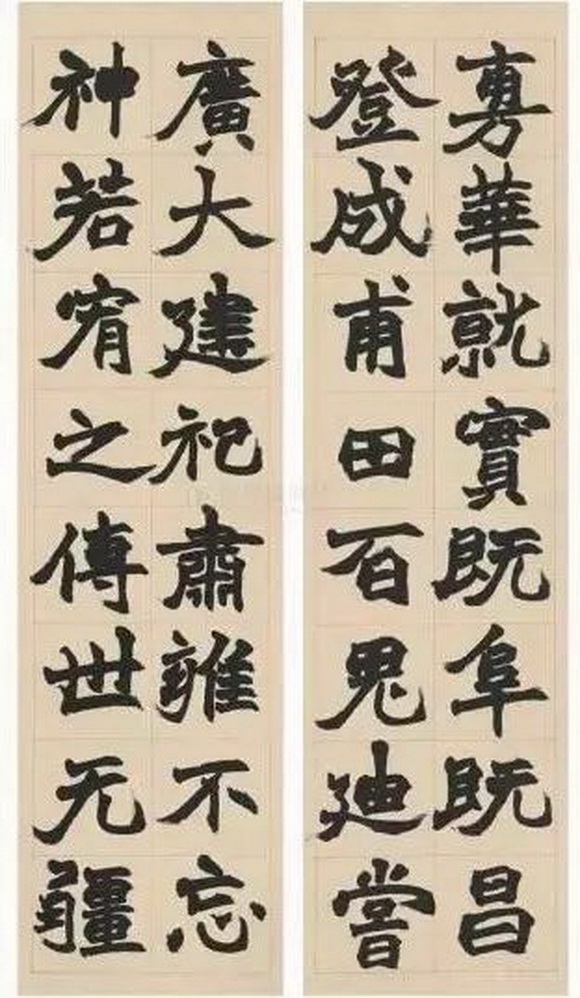 旉華就實既阜既昌
登成甫田百鬼廸嘗
廣大建祀肅雍不忘
神若宥之傳世无疆